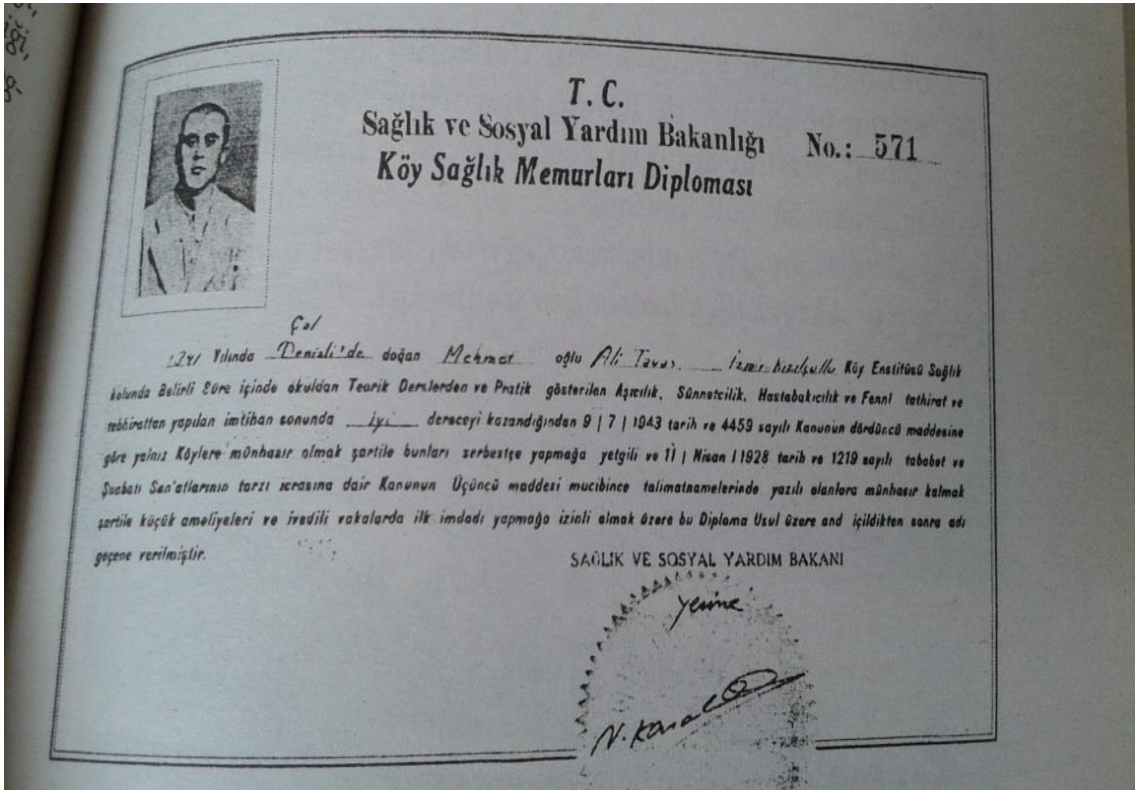 T. C.
Sağlık ve Sosyal Yardım Bakanlığı
No.: 571
Köy Sağlık Memurları Diploması
Çal
Yılında Denizli'de doğan Mehmet oğlu Ali Köy Enstitüsü Sağlık
kolunda Belirli Süre içinde okuldan Teorik Derslerden ve Pratik gösterilen Aşıcılık, Sünnetcilik, Hastabakıcılık ve Fenni tathirat ve
tebhirattan yapılan imtihan sonunda iyi dereceyi kazandığından 9 / 7 / 1943 tarih ve 4459 sayılı Kanunun dördüncü maddesine
göre yalnız Köylere münhasır olmak şartile bunları serbestçe yapmağa yetgili ve 11 / Nisan / 1928 tarih ve 1219 sayılı tababet ve
Şuabatı San'atlarının tarzı icrasına dair Kanunun Üçüncü maddesi mucibince talimatnamelerinde yazılı olanlara münhasır kalmak
şartile küçük ameliyeleri ve ivedili vakalarda ilk imdadı yapmağa izinli olmak üzere bu Diploma Usul üzere and içildikten sonra adı
geçene verilmiştir.
SAĞLIK VE SOSYAL YARDIM BAKANI
Yerine